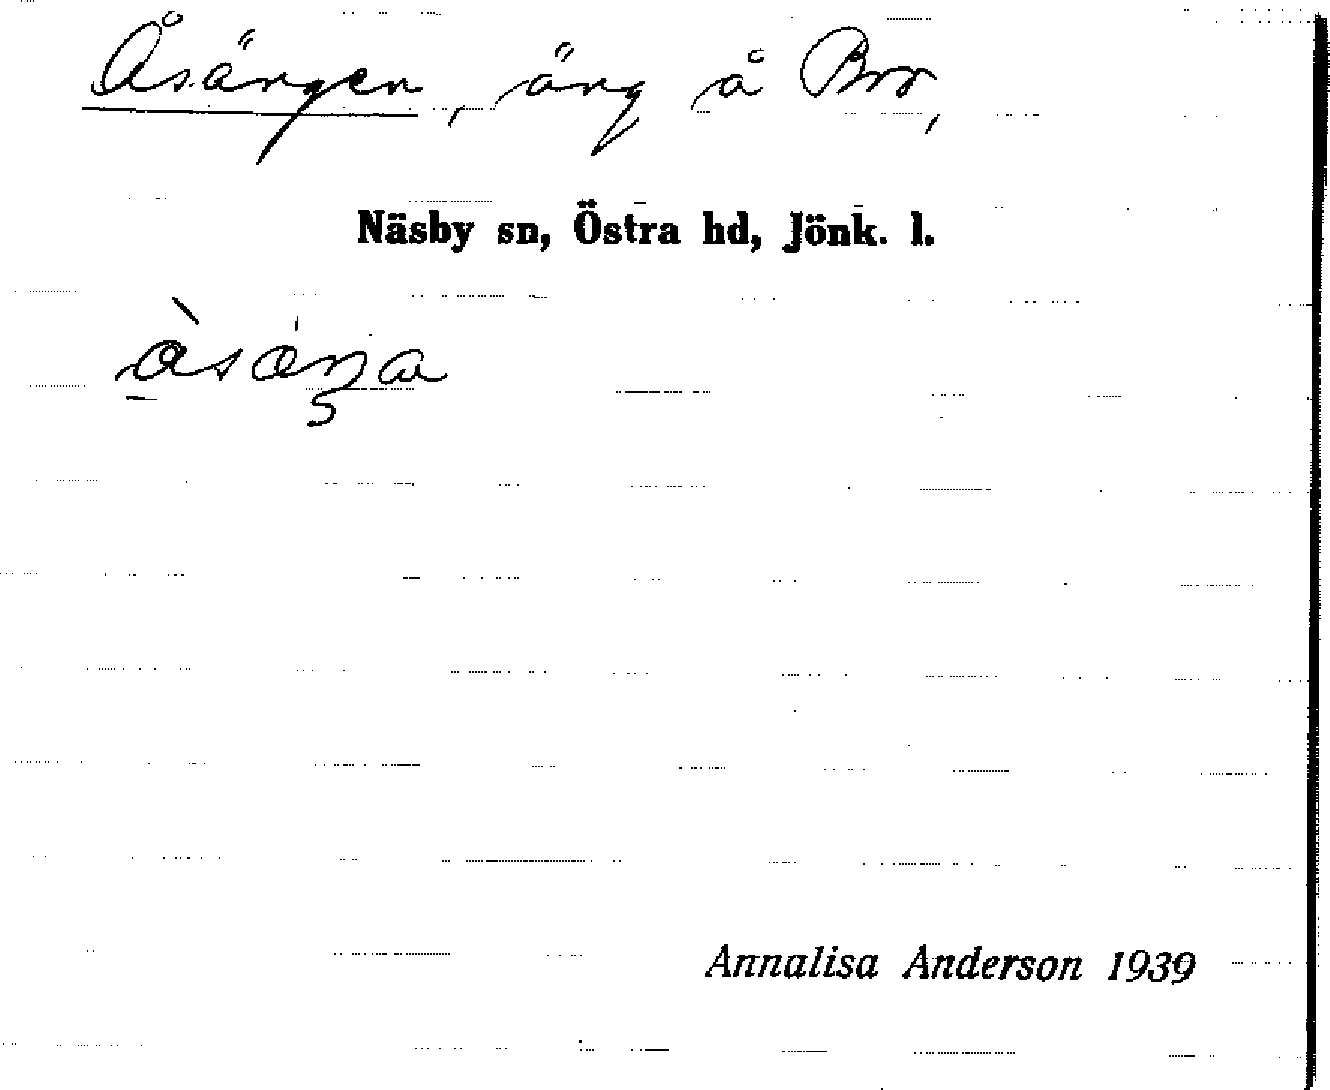 Åsängen, äng å Bro,
Näsby sn, Östra hd, Jönk. l.
Annalisa Anderson 1939